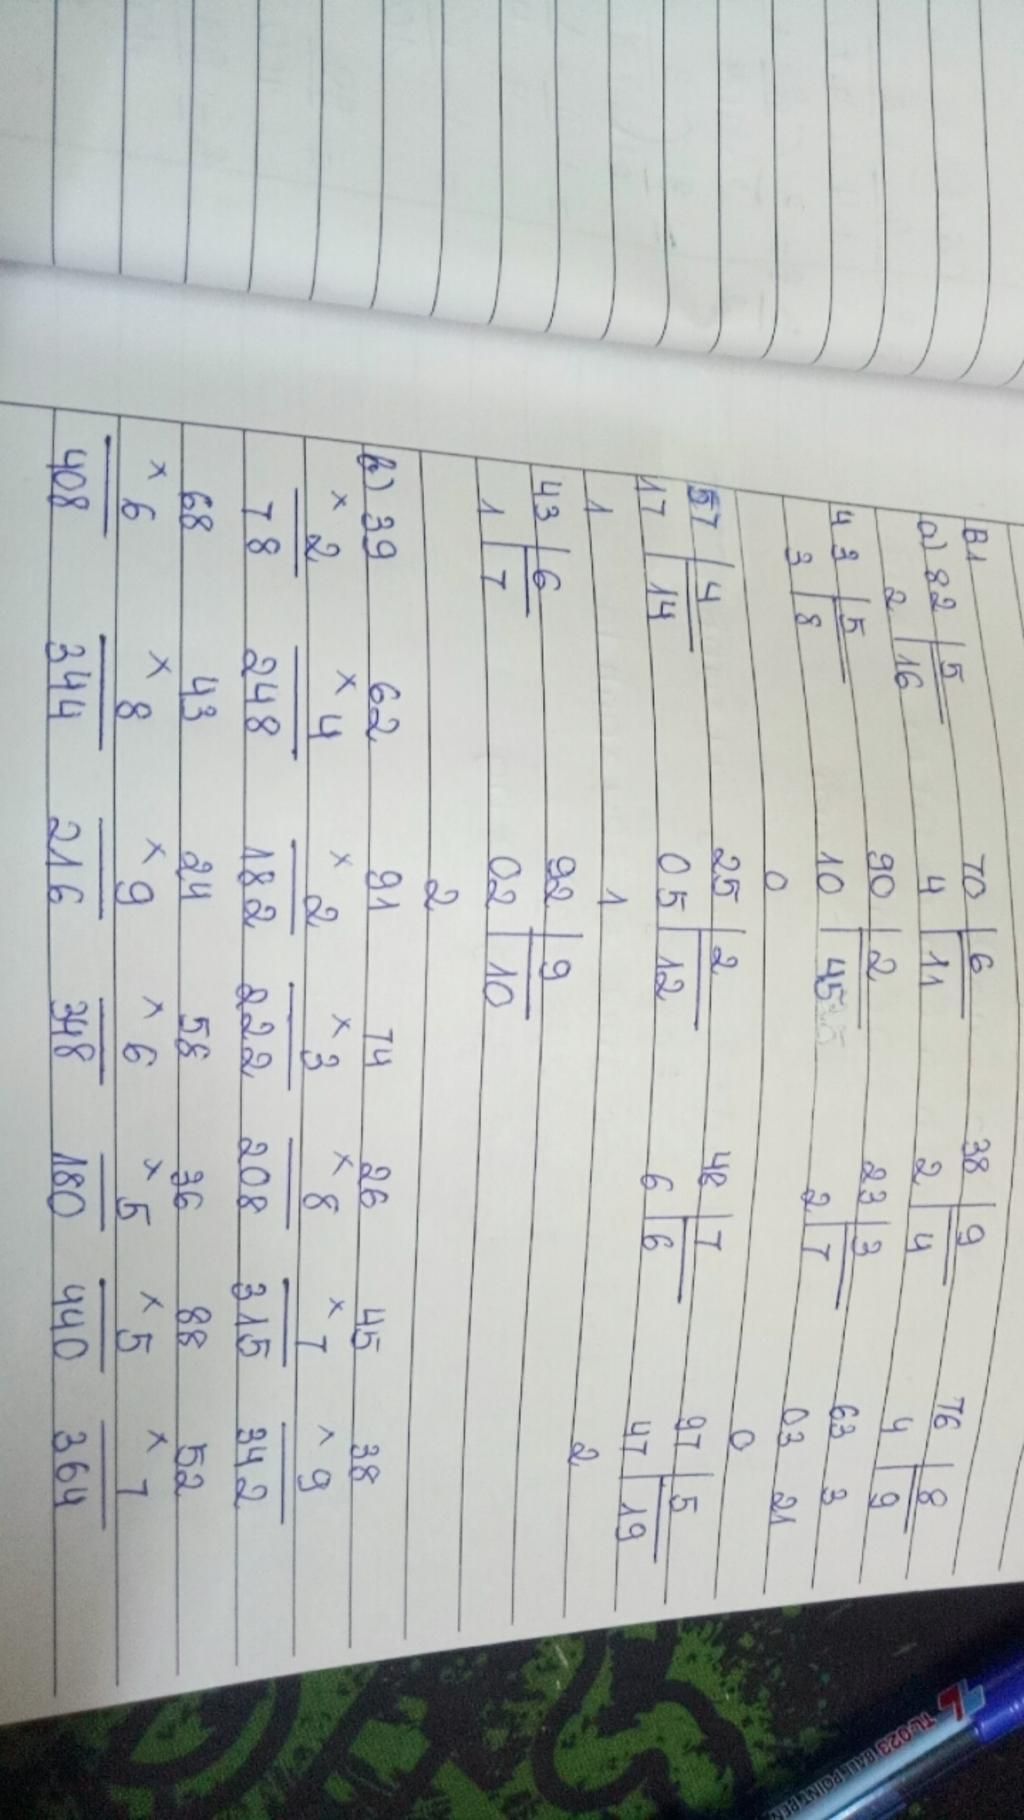 B1
a) 82 5 70 6 38 9 76 8
2 16 4 11 2 4 4 9
43 5 90 2 23 3 63 3
3 8 10 45 2 7 03 21
0 0
57 4 25 2 48 7 97 5
17 14 05 12 6 6 47 19
1 1 2
43 6 92 9
1 7 02 10
2
b) 39 62 91 74 26 45 38
× 2 × 4 × 2 × 3 × 8 × 7 × 9
78 248 182 222 208 315 342
68 43 24 58 36 88 52
× 6 × 8 × 9 × 6 × 5 × 5 × 7
408 344 216 348 180 440 364
TL023 BALL POINT PEN